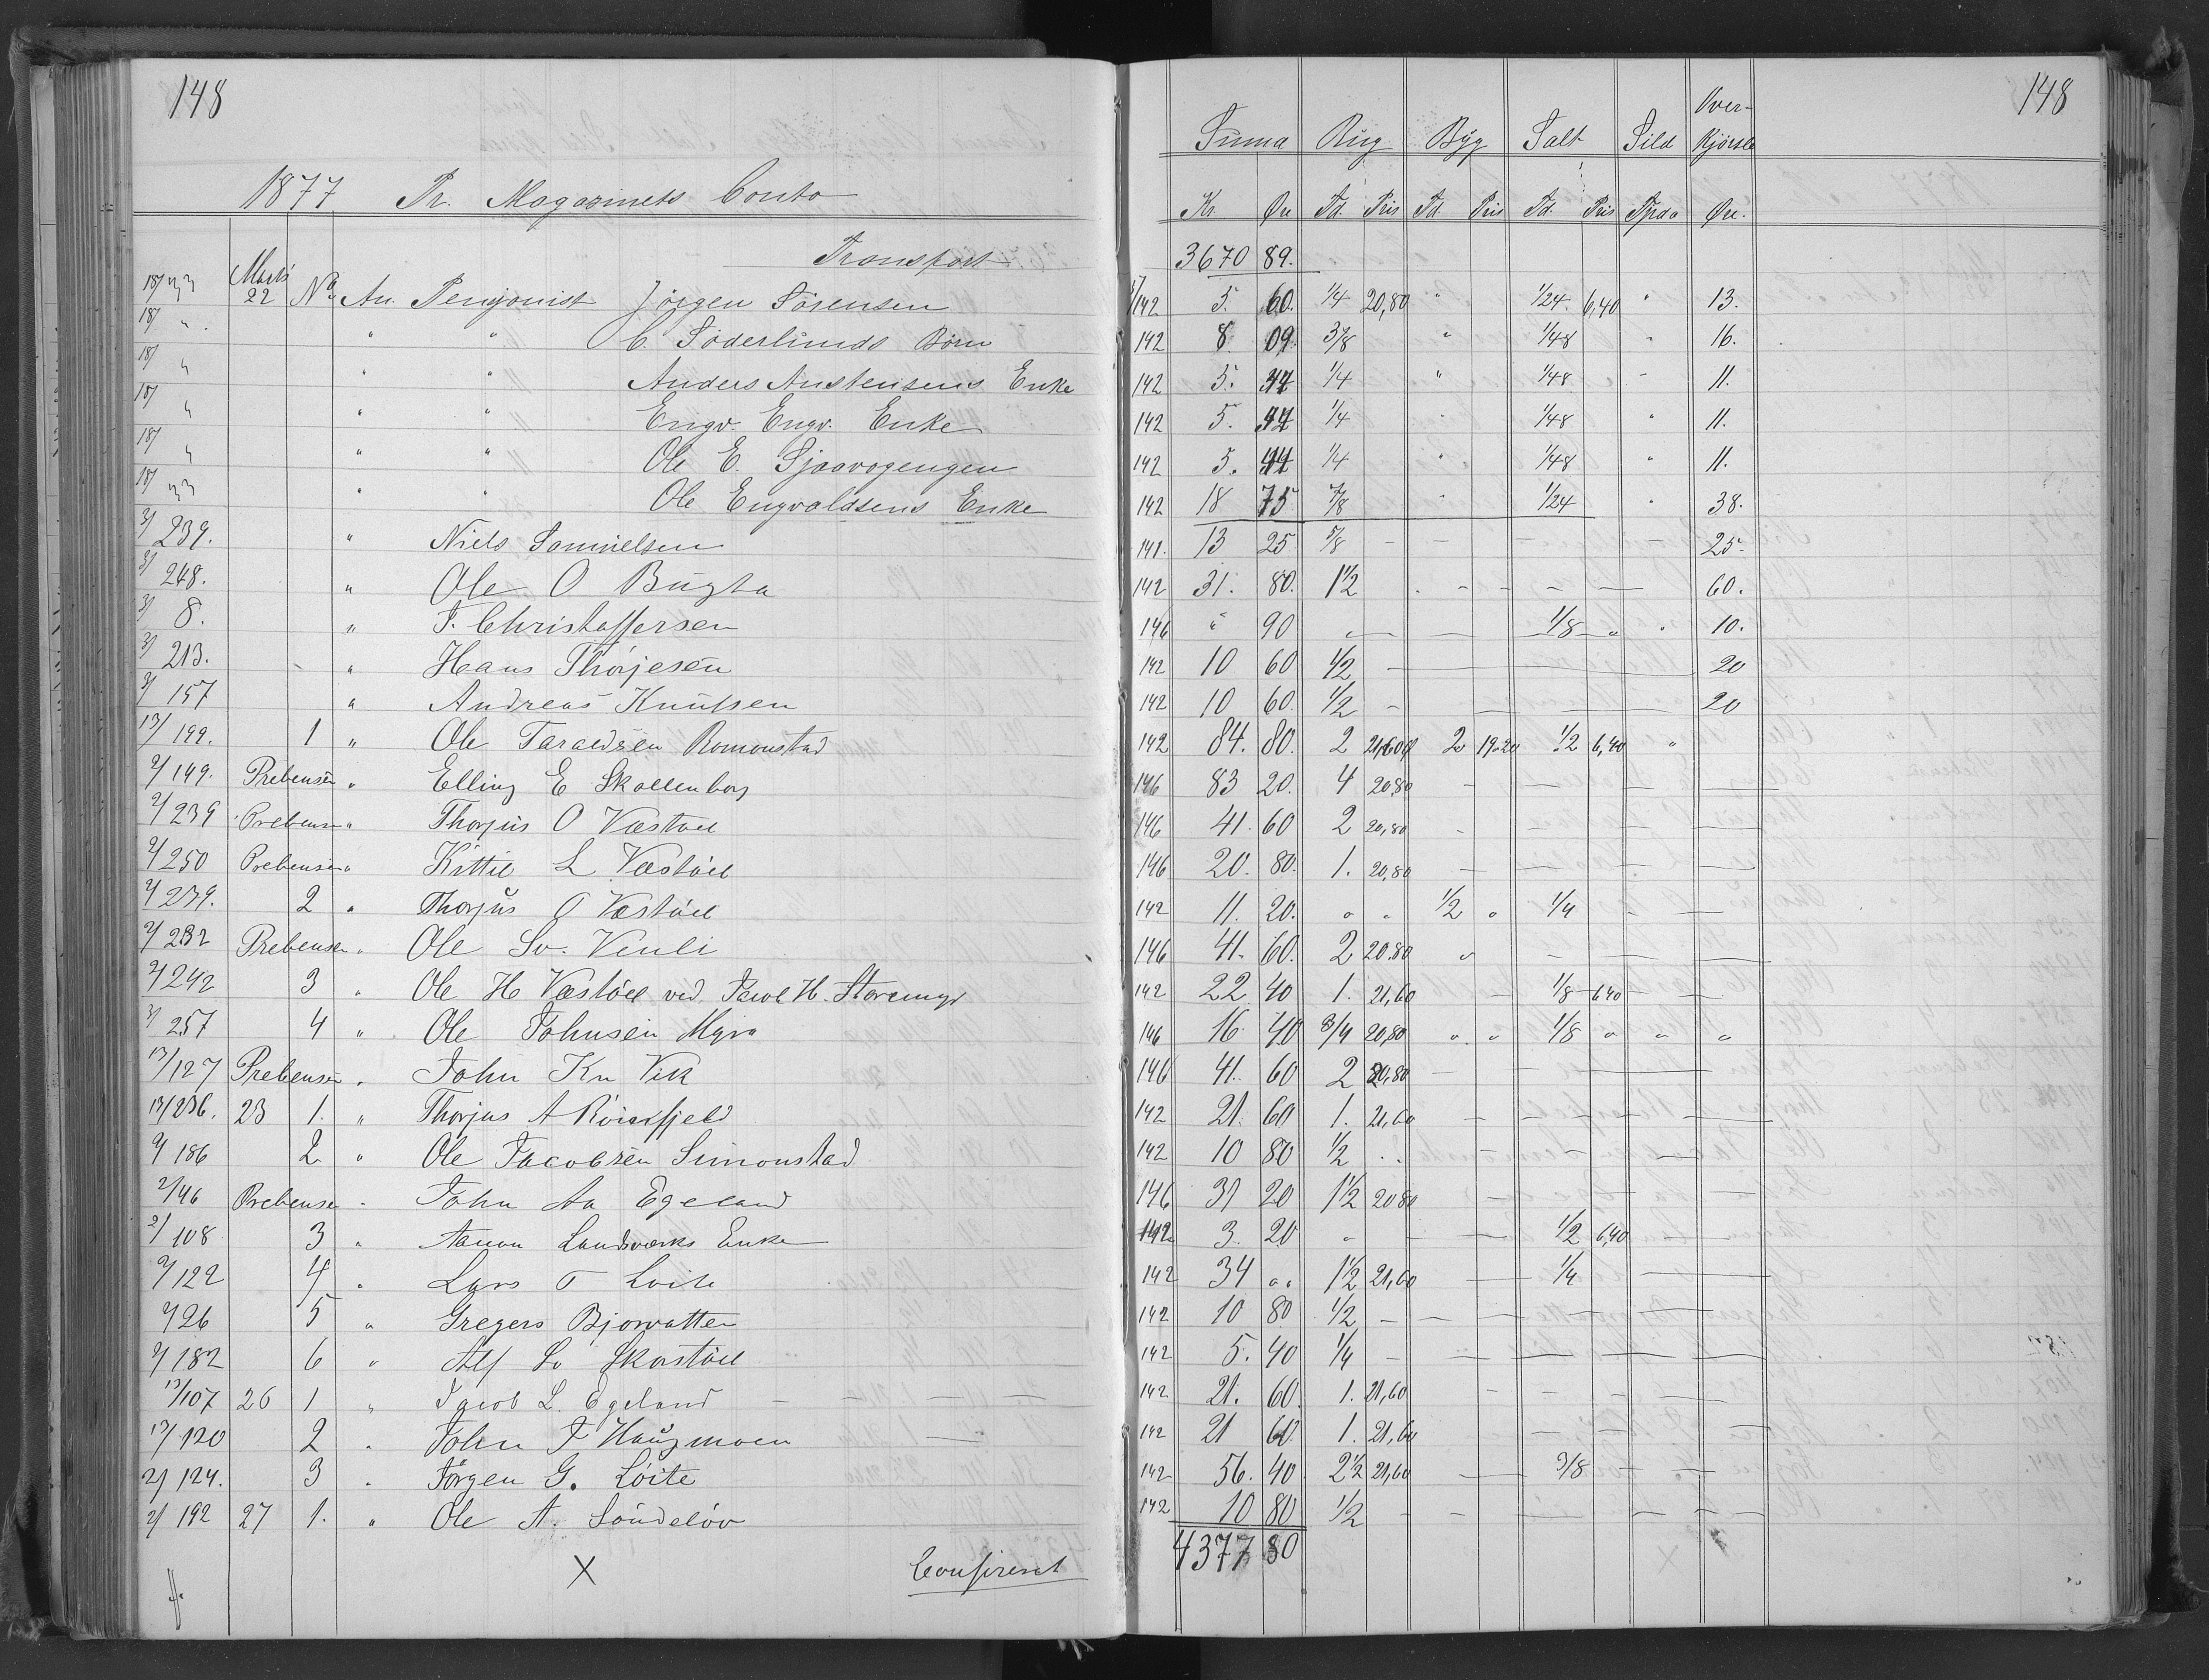 148
1877 Pr. Magazinets Conto
Transport
18/33 Marts 22 No An. Pensjonist Jörgen Sörensen
18/ " " " C. Söderlunds Börn
18/ " " " Anders Austensens Enke
18/ " " " Engv. Engv. Enke
18/ " " " Ole E.
18/33 " " Ole Engvaldsens Enke
3/239. " Niels Samuelsen
3/248. " Ole O Bugta
3/8. " J. Christoffersen
3/213. " Hans Thorjesen
3/157 " Andreas Knutsen
13/199. 1 " Ole Taraldsen Romonstad
2/149. Prebensen " Elling E Skollenborg
2/239 Prebensen " Thorjus O Vestöel
2/250 Prebensen " Kittil L Vestöel
2/239. 2 " Thorjus O Vestöel
2/232 Prebensen " Ole Sv. Venli
2/242 3 " Ole H Vestöel ved Jacob H.
3/257 4 " Ole Johnsen Myra
13/127 Prebensen " John Kn Vik
13/236. 23 1. " Thorjus A
2/186 2 " Ole Jacobsen Simonstad
2/46 Prebensen " John Aa Egeland
2/108 3 " Aanon Landsverks Enke
2/122 4 " Lars T Loite
2/26 5 " Gregers Bjorvatten
2/182 6 " Alf Sv
13/107 26 1 " Jacob L. Egeland
13/120 2 " John J Haugmoen
2/124. 3 " Jörgen G. Löite
2/192 27 1. " Ole A. Söndelöv
X Confireret
148
Summa Rug Byg Salt Sild Over-
Kjörsle
Kr. Øre Td. Pris Td. Pris Td. Pris Øre.
3670 89.
142 5. 60. 1/4 20,80 " 1/24. 6,40 " 13.
142 8 09. 3/8 " 1/48 " 16.
142 5. 1/4 " 1/48 - 11.
142 5. 1/4 " 1/48 " 11.
142 5. 44 1/4 " 1/48 " 11.
142 18 75 7/8 " 1/24 " 38.
141. 13 25 5/8 - - - - 25.
142 31. 80. 1 1/2 - - - - 60.
146 " 90 - - 1/8 " " 10.
142 10 60 1/2 - 20
142 10 60. 1/2 - 20
142 84. 80. 2 2 19.20 1/2 6,40 "
146 83 20. 4 20,80 - - -
146 41. 60 2 20,80 - - -
146 20. 80. 1. 20,80 - - -
142 11. 20. " " 1/2 " 1/4 - -
146 41. 60. 2 20.80 " - -
142 22 40 1. 21,60 - 1/8 6,40 - -
146 16 40 3/4 20,80 " " 1/8 " " "
146 41. 60 2 20,80 - - -
142 21. 60 1. 21,60 - - -
142 10 80 1/2 " - - -
146 31 20 1 1/2 20 80 - - -
142 3. 20 " - - 1/2 6,40 - -
142 34 " " 1 1/2 21,60 - 1/4 -
142 10 80 1/2 - - - -
142 5. 40 1/4 - - - -
142 21. 60 1. 21,60 - - -
142 21 60. 1. 21,60 - - -
142 56. 40 2 1/2 21,60 - 3/8 - -
142 10 80 1/2 - - - -
4377 80